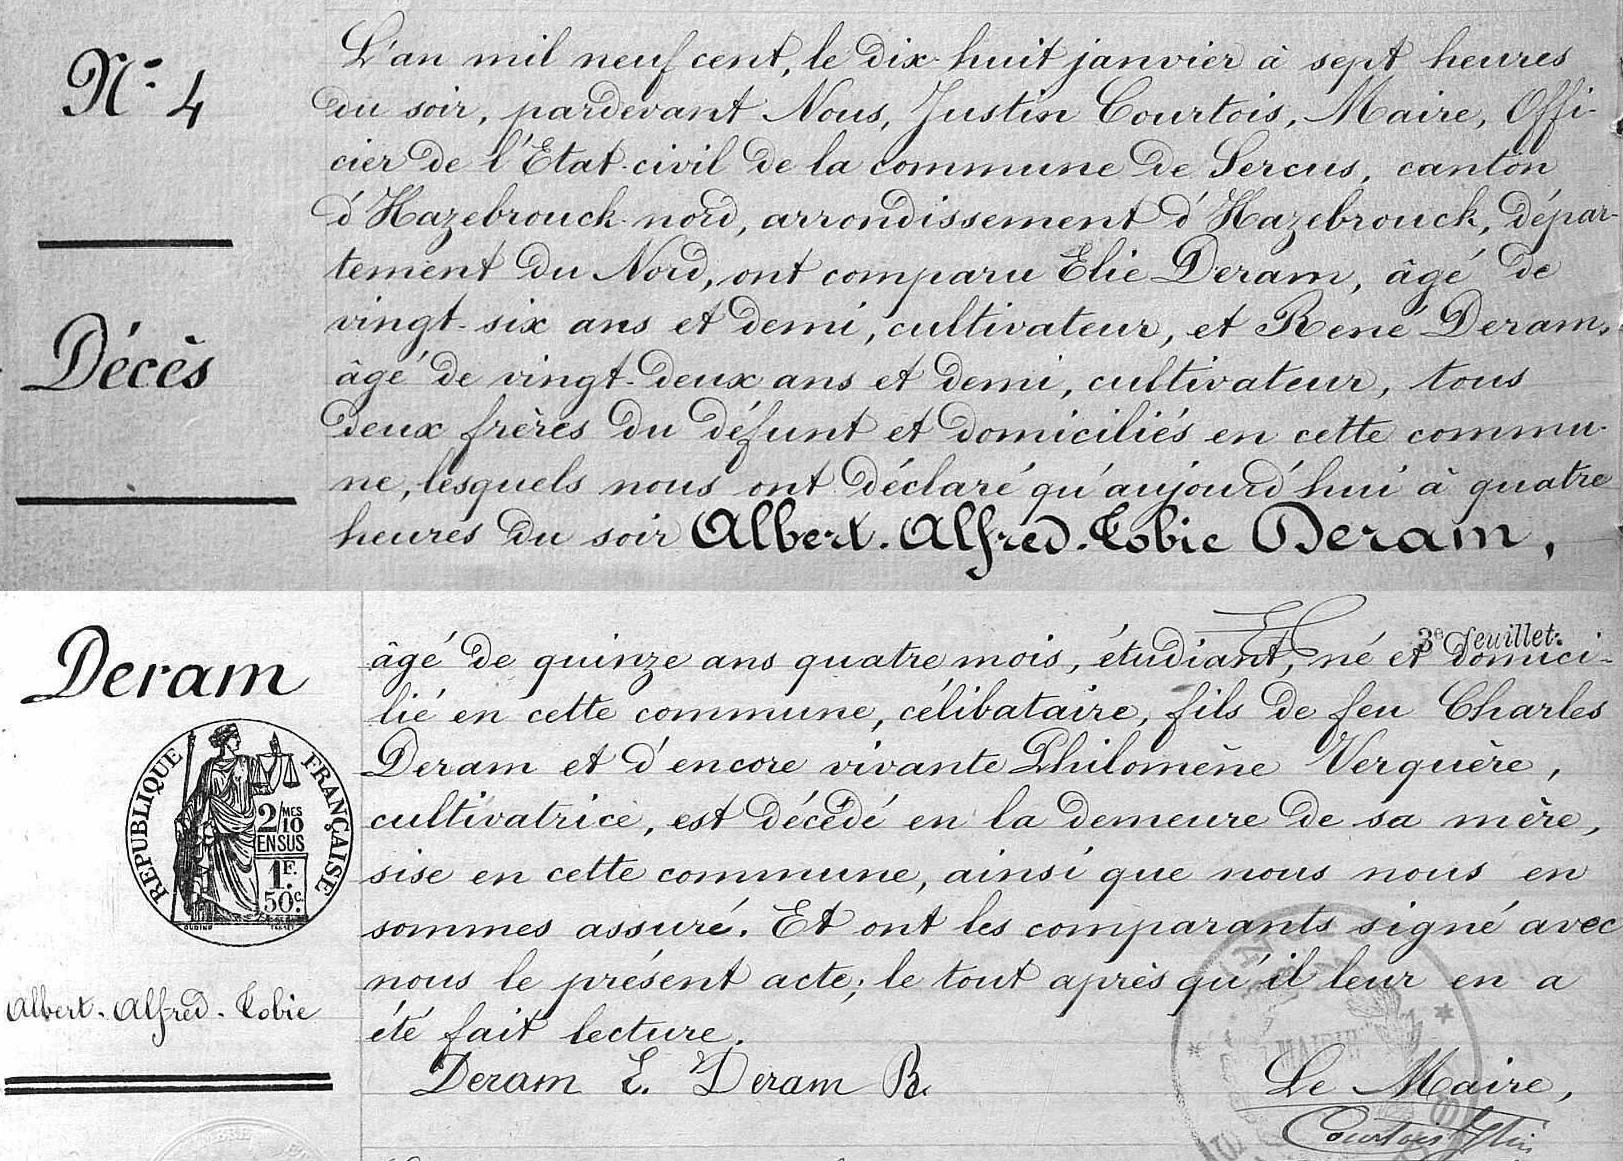 N° 4
Décès
L'an mil neuf cent, le dix-huit janvier à sept heures
du soir, pardevant Nous, Justin Courtois, Maire, Offi-
cier de l'Etat-civil de la commune de Sercus, canton
d'Hazebrouck-nord, arrondissement d'Hazebrouck, dépar-
tement du Nord, ont comparu Elie Deram, âgé de
vingt-six ans et demi, cultivateur, et René Deram,
âgé de vingt-deux ans et demi, cultivateur, tous
deux frères du défunt et domiciliés en cette commu-
ne, lesquels nous ont déclaré qu'aujourd'hui à quatre
heures du soir Albert-Alfred-Tobie Deram,
Deram
REPUBLIQUE FRANÇAISE
2/10 MES
EN SUS
1F.
50c.
Albert-Alfred-Tobie
3e feuillet.
âgé de quinze ans quatre mois, étudiant, né et domici-
lié en cette commune, célibataire, fils de feu Charles
Deram et d'encore vivante Philomène Verquère,
cultivatrice, est décédé en la demeure de sa mère,
sise en cette commune, ainsi que nous nous en
sommes assuré. Et ont les comparants signé avec
nous le présent acte; le tout après qu'il leur en a
été fait lecture.
Deram E. Deram R.
Le Maire,
Courtois Jtin
MAIRIE